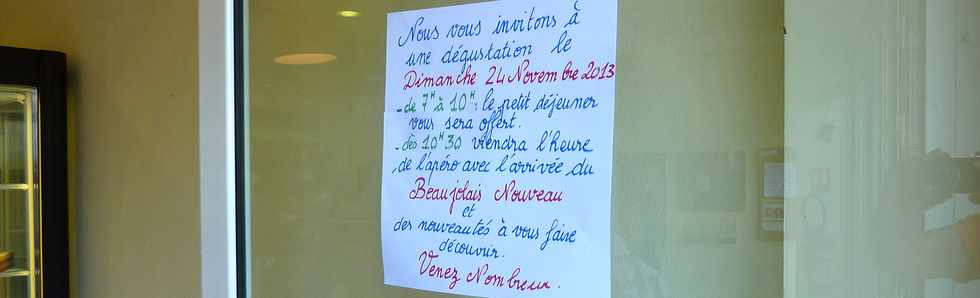 Nous vous invitons à
une dégustation le
Dimanche 24 Novembre 2013
- de 7H à 10H : le petit déjeuner
vous sera offert.
- dès 10H30 viendra l'heure
de l'apéro avec l'arrivée du
Beaujolais Nouveau
et
des nouveautés à vous faire
découvrir.
Venez Nombreux.